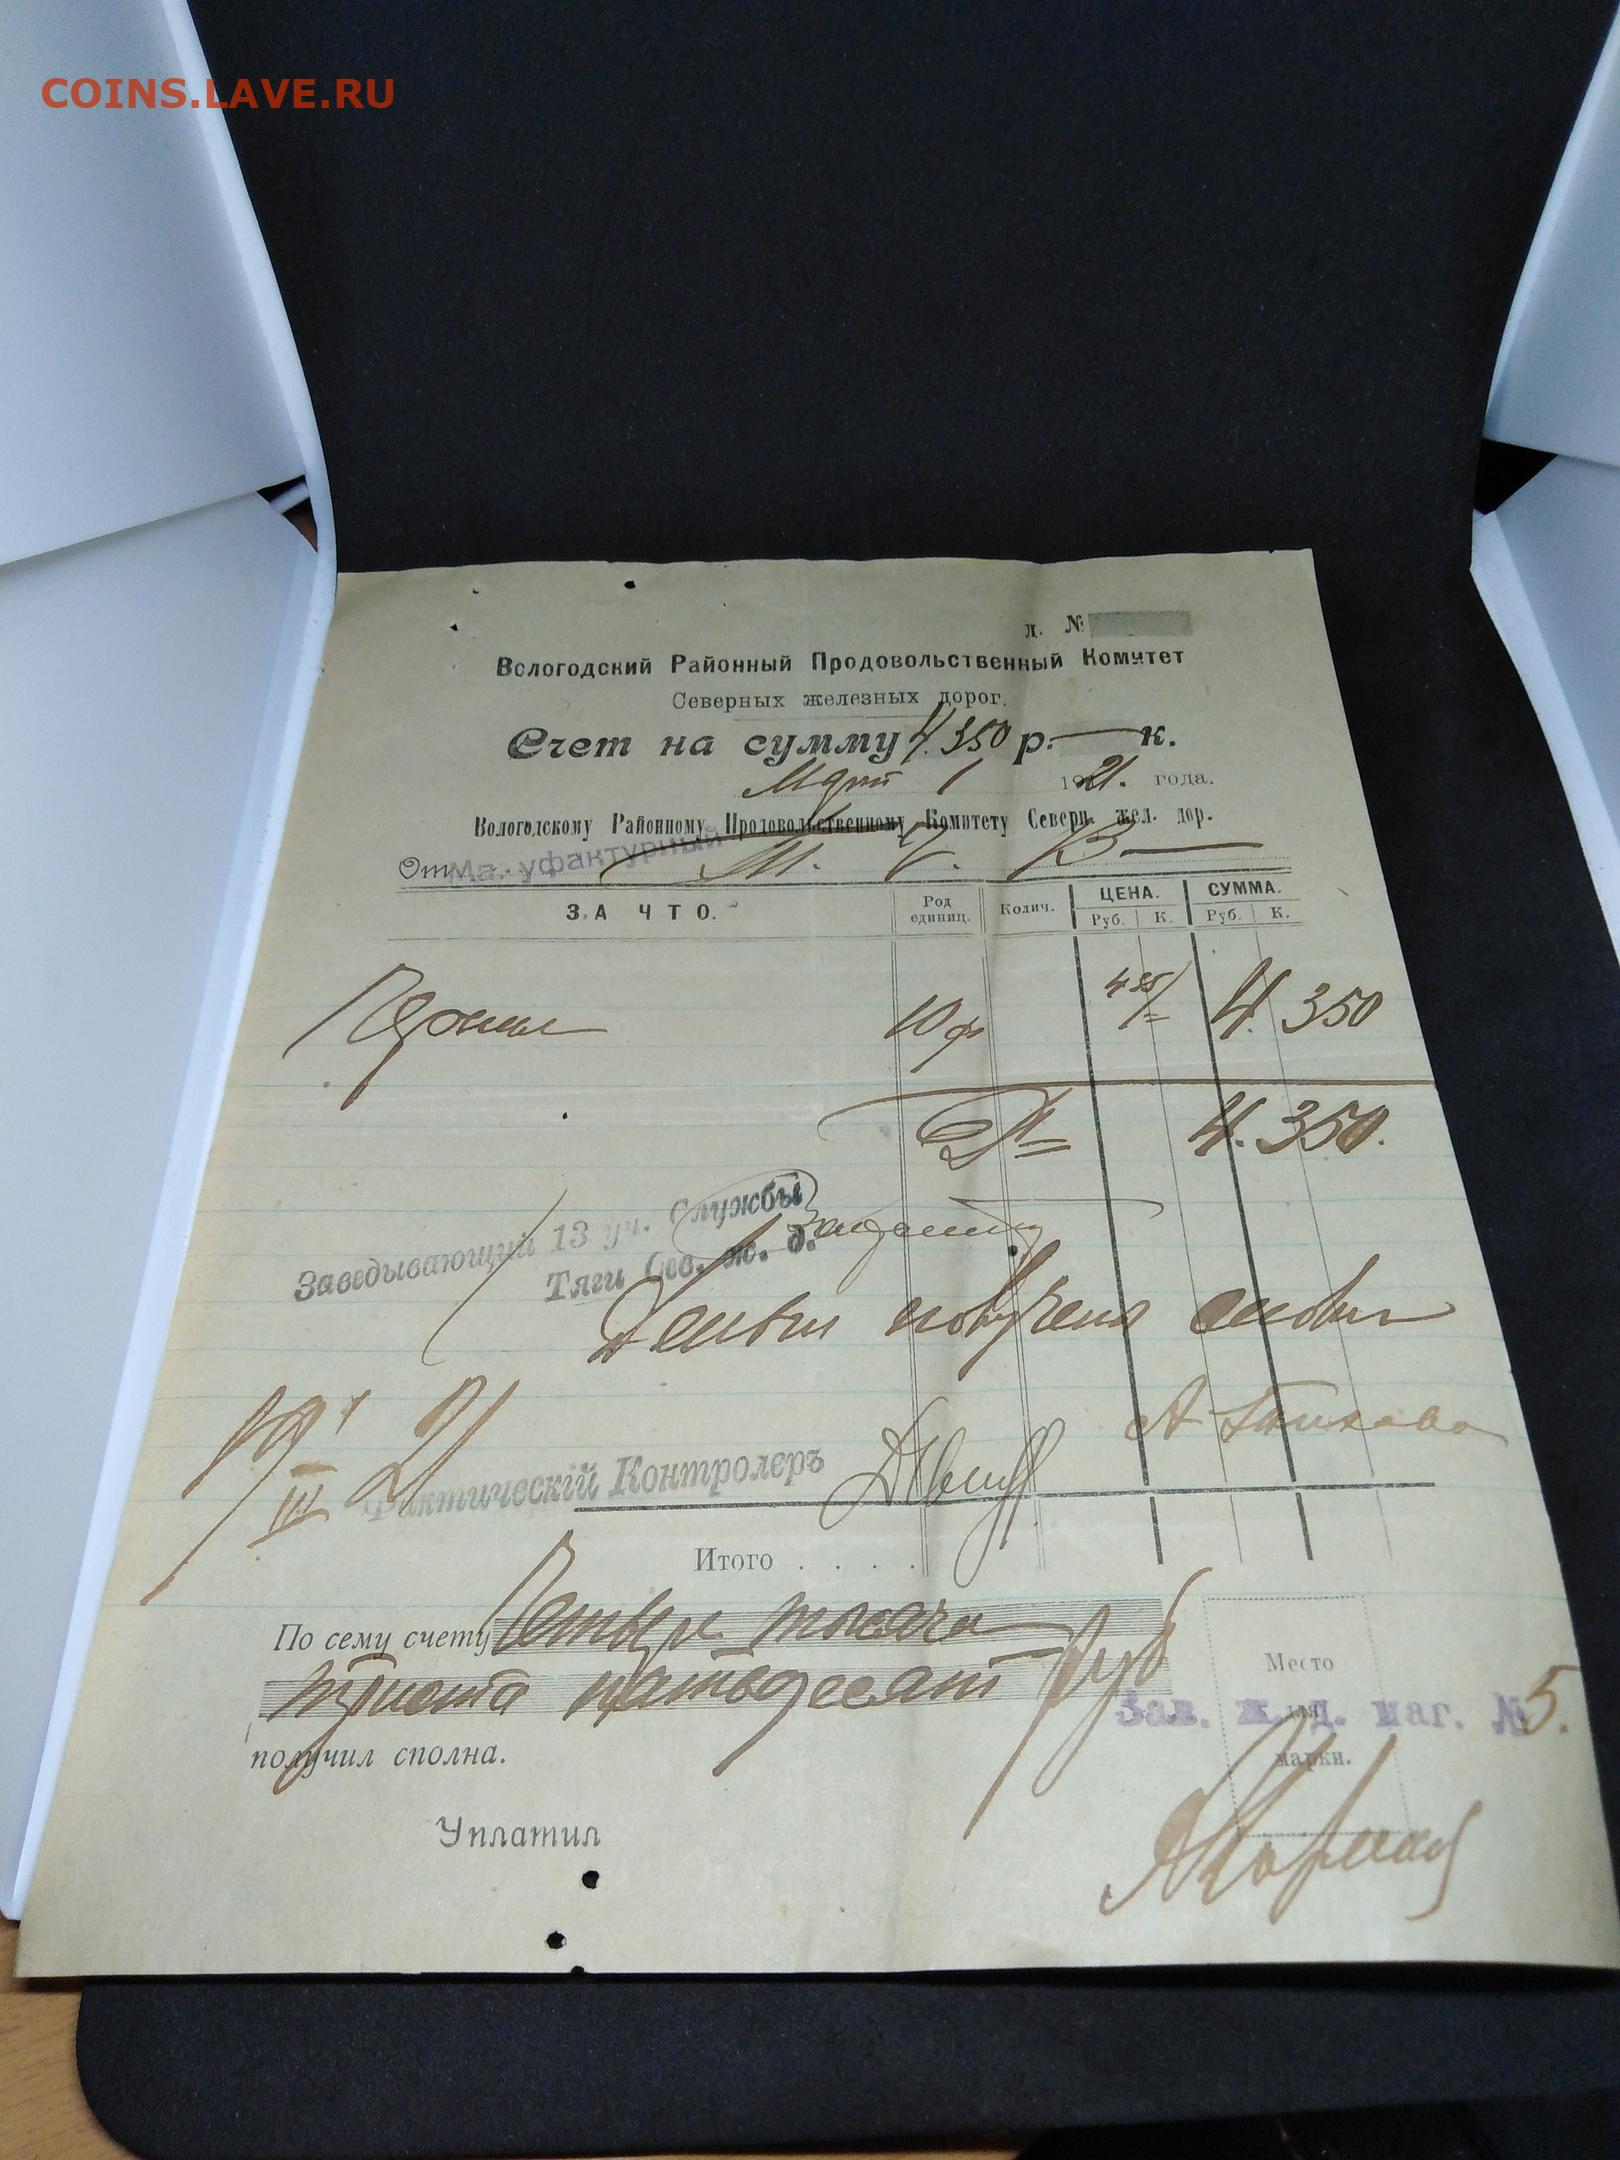 COINS.LAVE.RU
л. №
Вологодский Районный Продовольственный Комитет
Северных железных дорог.
Счет на сумму 4.350 р. — к.
Март 1 1921. года.
Вологодскому Районному Продовольственному Комитету Северн. жел. дор.
От Мануфактурный
ЗА ЧТО. Род единиц. Колич. ЦЕНА. Руб. К. СУММА. Руб. К.
10 ф 435/= 4.350
4.350.
Заведывающий 13 уч. Службы
Тяги Сев. ж. д.
Деньги получил сполна
19/III 21
Фактическій Контролеръ
Итого . . . .
По сему счету Четыре тысячи
триста пятьдесят руб
получил сполна.
Место
для
марки.
Зав. ж. д. маг. № 5.
Уплатил